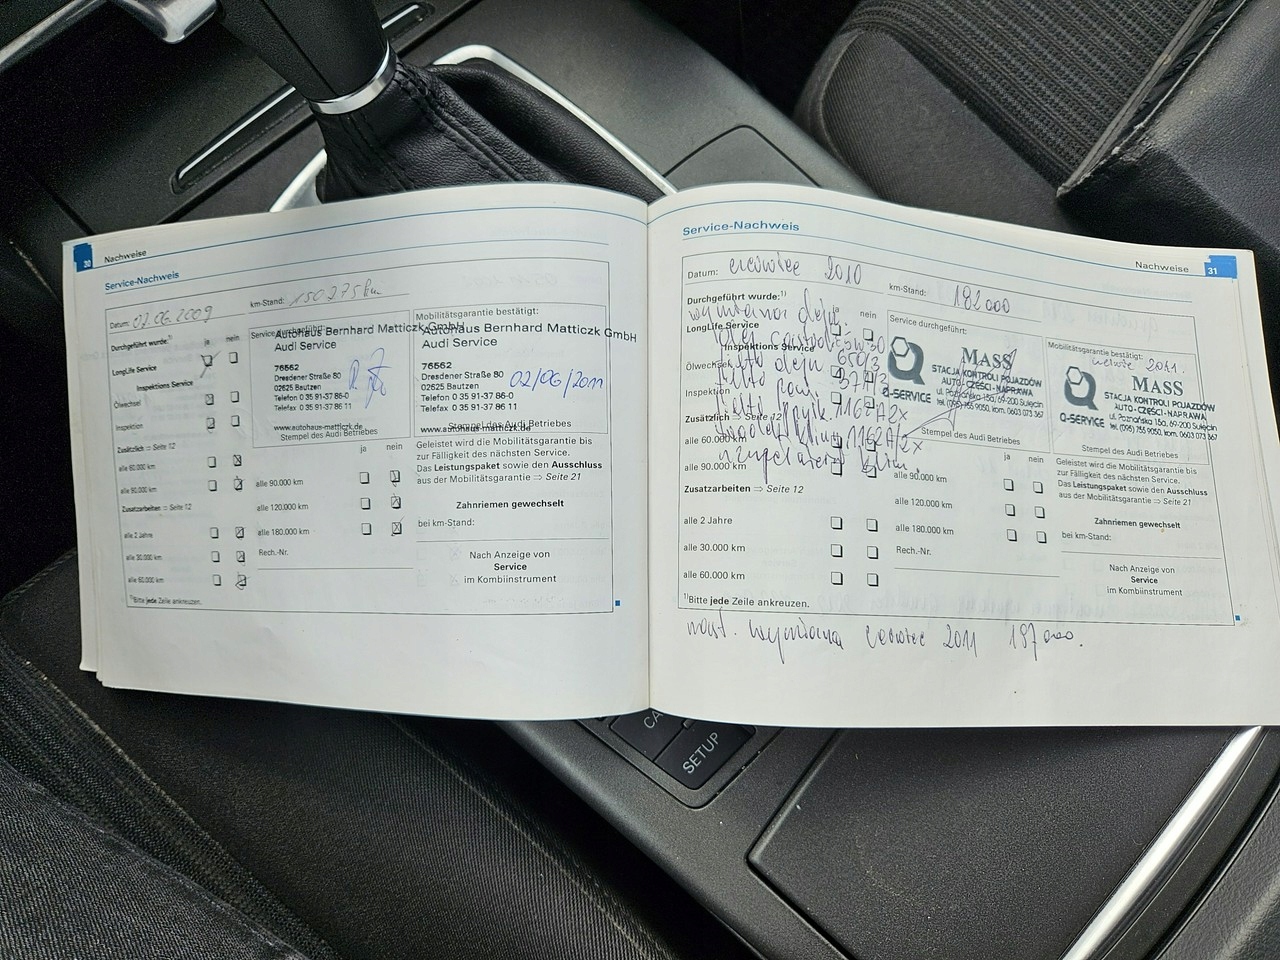 30
Nachweise
Service-Nachweis
Datum: 02.06.2009
km-Stand: 150 275 km
Durchgeführt wurde:¹⁾
ja
nein
LongLife Service
Inspektions Service
Ölwechsel
Inspektion
Zusätzlich ⇒ Seite 12
alle 60.000 km
alle 90.000 km
Zusatzarbeiten ⇒ Seite 12
alle 2 Jahre
alle 30.000 km
alle 60.000 km
¹⁾Bitte jede Zeile ankreuzen.
Service durchgeführt:
Autohaus Bernhard Matticzk GmbH
Audi Service
76562
Dresdener Straße 80
02625 Bautzen
Telefon 0 35 91-37 86-0
Telefax 0 35 91-37 86 11
www.autohaus-matticzk.de
Stempel des Audi Betriebes
ja
nein
alle 90.000 km
alle 120.000 km
alle 180.000 km
Rech.-Nr.
Mobilitätsgarantie bestätigt:
Autohaus Bernhard Matticzk GmbH
Audi Service
76562
Dresdener Straße 80
02625 Bautzen
Telefon 0 35 91-37 86-0
Telefax 0 35 91-37 86 11
02/06/2011
www.autohaus-matticzk.de
Stempel des Audi Betriebes
Geleistet wird die Mobilitätsgarantie bis
zur Fälligkeit des nächsten Service.
Das Leistungspaket sowie den Ausschluss
aus der Mobilitätsgarantie ⇒ Seite 21
Zahnriemen gewechselt
bei km-Stand:
Nach Anzeige von
Service
im Kombiinstrument
Service-Nachweis
Nachweise
31
Datum: czerwiec 2010
km-Stand: 182 000
Durchgeführt wurde:¹⁾
nein
wymiana oleju
LongLife Service
Inspektions Service
5W30
Ölwechsel
filtr oleju 650/3
Inspektion
Zusätzlich ⇒ Seite 12
1162A2x
alle 60.000 km
alle 90.000 km
Zusatzarbeiten ⇒ Seite 12
alle 2 Jahre
alle 30.000 km
alle 60.000 km
¹⁾Bitte jede Zeile ankreuzen.
Service durchgeführt:
Q-SERVICE
MASS
STACJA KONTROLI POJAZDÓW
AUTO-CZĘŚCI-NAPRAWA
ul. Poznańska 15a, 69-200 Sulęcin
tel. (095) 755 9050, kom. 0603 073 367
Stempel des Audi Betriebes
ja
nein
alle 90.000 km
alle 120.000 km
alle 180.000 km
Rech.-Nr.
Mobilitätsgarantie bestätigt:
czerwiec 2011.
Q-SERVICE
MASS
STACJA KONTROLI POJAZDÓW
AUTO-CZĘŚCI-NAPRAWA
ul. Poznańska 15a, 69-200 Sulęcin
tel. (095) 755 9050, kom. 0603 073 367
Stempel des Audi Betriebes
Geleistet wird die Mobilitätsgarantie bis
zur Fälligkeit des nächsten Service.
Das Leistungspaket sowie den Ausschluss
aus der Mobilitätsgarantie ⇒ Seite 21
Zahnriemen gewechselt
bei km-Stand:
Nach Anzeige von
Service
im Kombiinstrument
nast. wymiana czerwiec 2011 197 000.
CA
SETUP